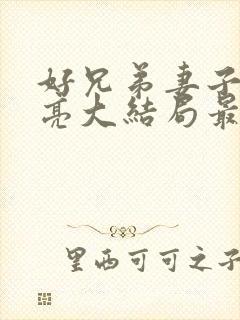 好兄弟妻子
亮大结局最
里西可可之子